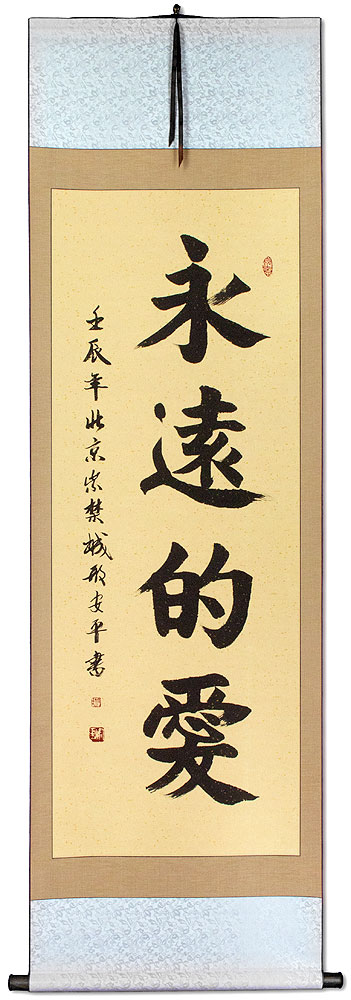 永遠的愛
壬辰年北京紫禁城段安平書